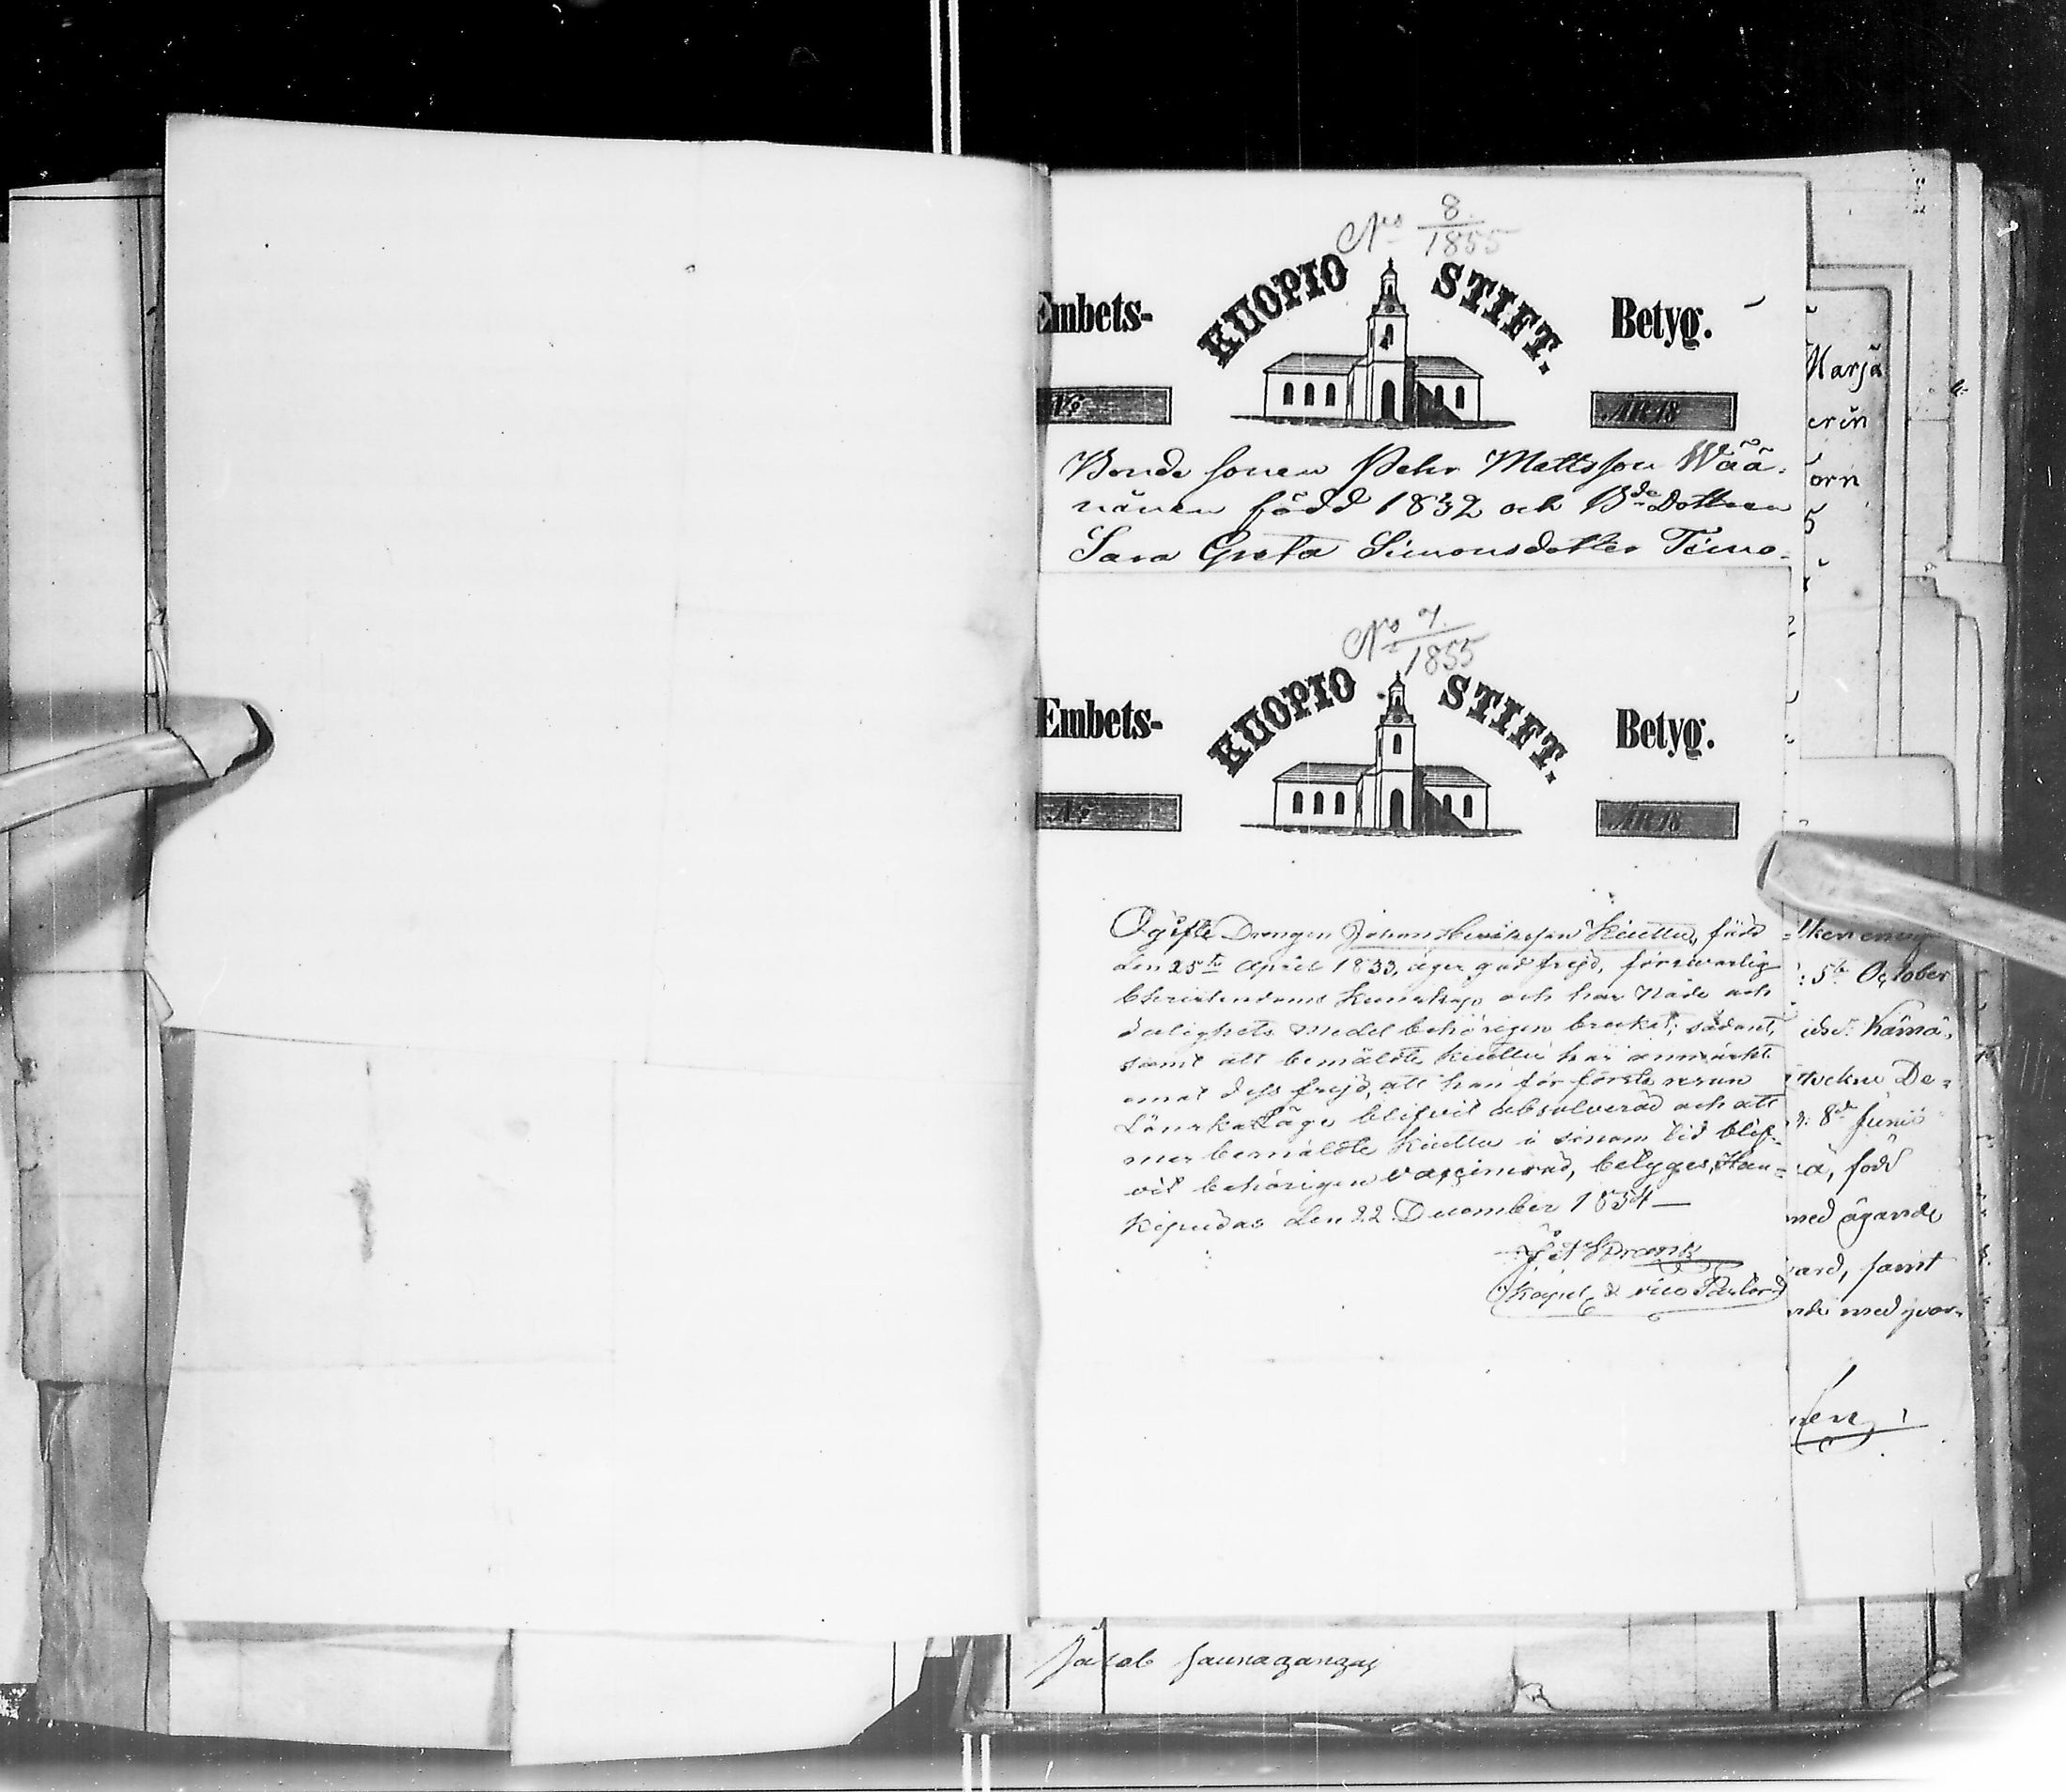 No 8/1855
Embets- KUOPIO STIFT. Betyg.
No ÅR 18
Bonde sonen Pehr Mattsson Wää-
nänen född 1832 och Bde Dottren
Sara Greta Simonsdotter Timo-
No 7/1855
Embets- KUOPIO STIFT. Betyg.
No ÅR 18
Ogifte Drengen Johan Henriksson Kiuttu, född
den 25te April 1833, äger god frejd, försvarlig
Christendoms kunskap och har Nåde och
Salighets medel behörigen brukat; sådant,
samt att bemäldte Kiuttu har anmärkt
emot dess frejd, att han för första resan
Lönskaläge blifvit absolverad och att
mer bemäldte Kiuttu i sinom tid blif-
vit behörigen vaccinerad, betygas, Hau-
kipudas den 22 December 1854
Kapel. & vice Pastor
Marjä
erin
orn
5te October
Kämä-
De-
8de Junii
ä, född
med ägande
ard, samt
Jacob Saunagangas